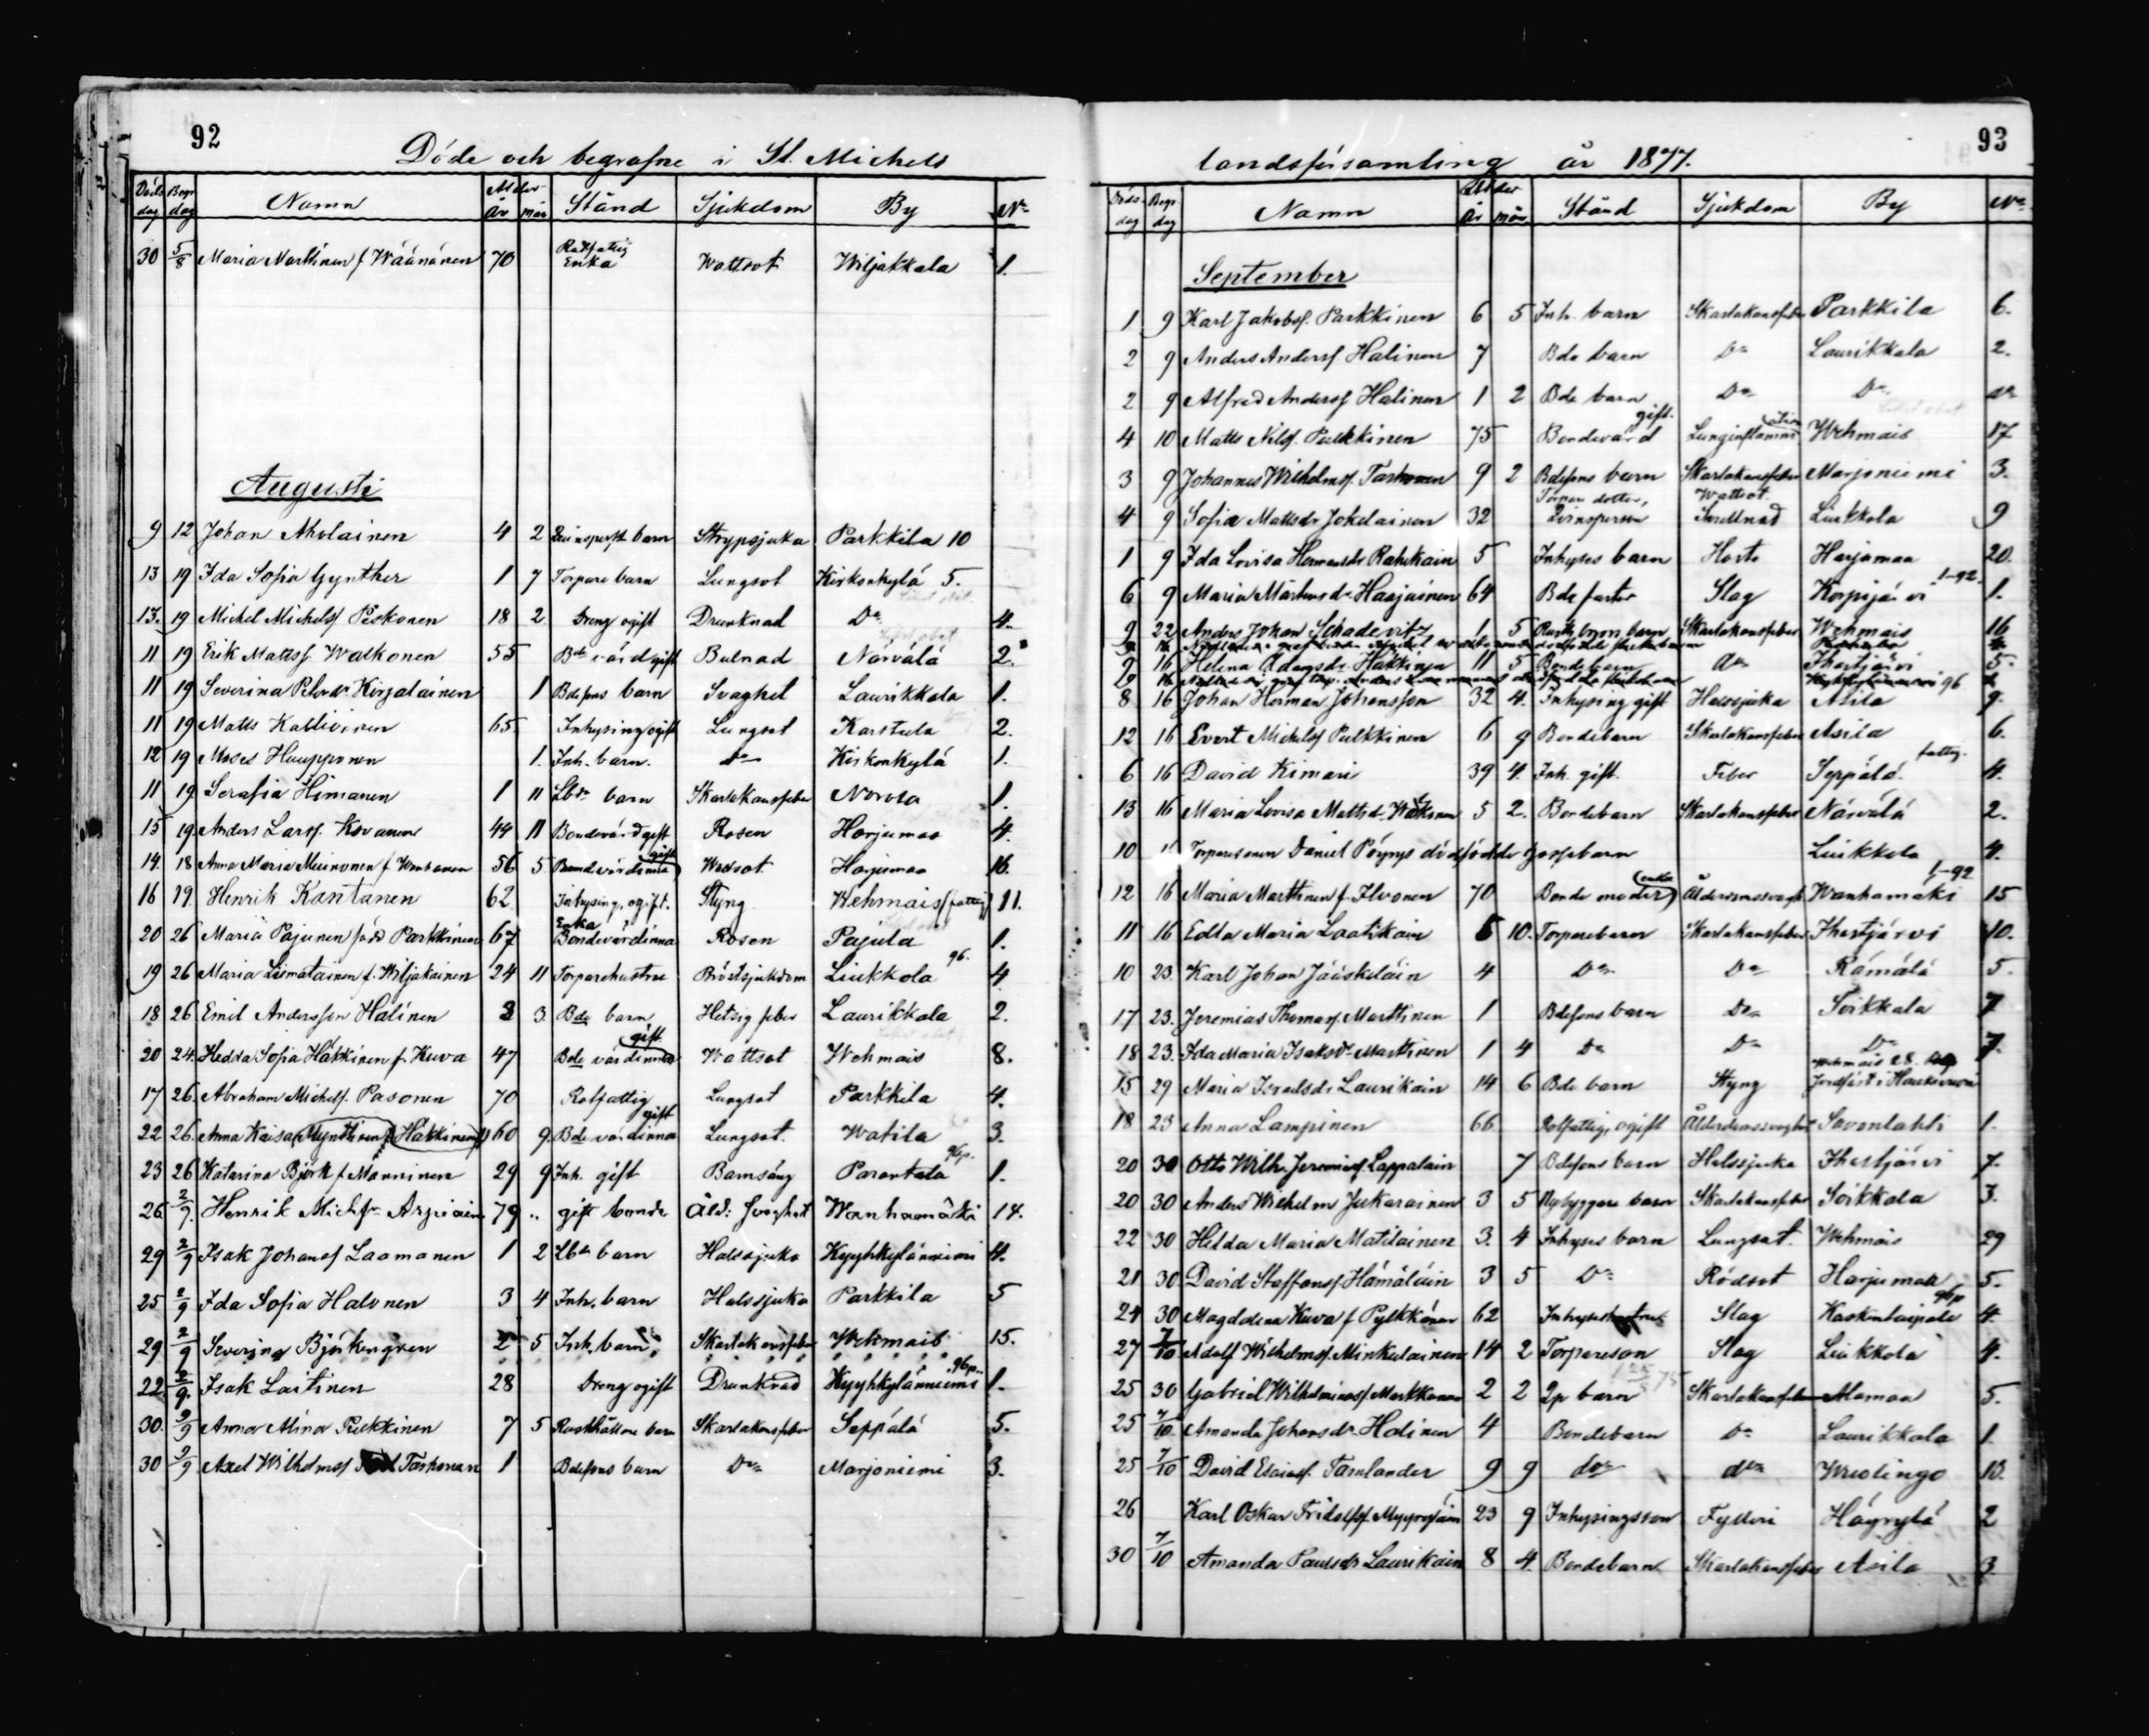 92
Döde och begrafne i St. Michels
Döds dag Begr dag Namn Ålder år mån Stånd Sjukdom By No
30 5/8 Maria Marttinen f Wäänänen 70 Rotfattig Enka Wattsot Wiljakkala 1.
Augusti
9 12 Johan Aholainen 4 2 barn Strypsjuka Parkkila 10
13 19 Ida Sofia Gynther 1 7 Torpare barn Lungsot Kirkonkylä 5.
13. 19 Michel Michelsf Peskonen 18 2. Dreng ogift Drunknad Do 4.
11 19 Erik Mattsf Walkonen 55 Bde värd gift Bulnad Närvälä 2.
11 19 Severina Petersdr Kirjalainen 1 Bdesons barn Svaghet Laurikkala 1.
11 19 Matts Kallivinen 65 Inhysing ogift Lungsot Karstula 2.
12 19 Moses Haupponen 1. Inh. barn. do Kirkonkylä 1.
11 19 Serafia Himanen 1 11 Lbdr barn Skarlakansfeber Norola 1.
15 19 Anders Larsf. Kovanen 44 11 Bondevärd gift Rosen Harjumaa 4.
14. 18 Anna Maria Muinonen f Wanhanen 56 5 Bondevärdinna gift Wattsot Harjumaa 16.
16 19. Henrik Kontanen 62 Inhysing, ogift. Styng Wehmais (fattig) 11.
20 26 Maria Pajunen född Parkkinen 67 Enka Bondevärdinna Rosen Pajula 1.
19 26 Maria Liimatainen f. Wiljakainen 24 11 Torparehustru Bröstsjukdom Liukkola 96. 4
18 26 Emil Andersson Halinen 3 3. Bde barn Hetsig feber Laurikkala 2.
20 24. Hedda Sofia Häkkinen f. Kuva 47 Bde värdinna gift Wattsot Wehmais 8.
17 26. Abraham Michelsf. Pasonen 70 Rotfattig Lungsot Parkkila 4.
22 26. Anna Kaisa Mynttinen f Häkkinen 60 9. Bde värdinna gift Lungsot. Watila 3.
23 26 Katarina Björk f Manninen 29 9 Inh. gift Barnsäng Parantala 96p. 1.
26. 2/9. Henrik Michfn Arpiain 79 .. gift bonde Åld: svaghet Wanhamäki 14.
29 2/9 Isak Johansf Laamanen 1 2 Lbdr barn Halssjuka Kyyhkylänniemi 4.
25 2/9 Ida Sofia Halonen 3 4 Inh. barn Halssjuka Parkkila 5
29 2/9 Severina Björkengren 2 5 Inh. barn Skarlakansfeber Wehmais 15.
22. 2/9. Isak Laitinen 28 Dreng ogift Drunknad Kyyhkylänniemi 96p. 1.
30. 9/9 Anna Mina Pulkkinen 7 5 Rusthållare barn Skarlakansfeber Seppälä 5.
30 9/9 Axel Wilhelmsf Tarhonen 1 Bdesons barn Do Marjoniemi 3.
93
landsförsamling år 1877.
Döds- dag Begr dag Namn Ålder år mån Stånd Sjukdom By No
September
1 9 Karl Jakobsf. Parkkinen 6 5 Inh. barn Skarlakansfeber Parkkila 6.
2 9 Anders Andersf Halinen 7 Bde barn Do Laurikkala 2.
2 9 Alfred Andersf Halinen 1 2 Bde barn Do Do do
4 10 Matts Nilsf. Pulkkinen 75 Bondevärd gift. Lunginflammation Wehmais 17
3 9 Johannes Wilhelmsf. Tarhonen 9 2 Bdesons barn Skarlakansfeber Marjoniemi 3.
4 9 Sofia Mattsdr Jokelainen 32 Torpare dotter, Wattsot Liukkola 9
1 9 Ida Lovisa Hermansdr Rahikain 5 Inhyses barn Hosta Harjumaa 20.
6 9 Maria Mårtensdr Haajainen 64 Bde faster Slag Korpijärvi 1-92. 1.
9 22 Anders Johan Schadevitz 1 5 barn Skarlakansfeber Wehmais 16
9 16 Helena Adamsdr. Häkkinen 11 5 Bondebarn do Ihastjärvi 5.
8 16 Johan Herman Johansson 32 4. Inhysing gift Halssjuka Asila 96 9.
12 16 Evert Michelsf Pulkkinen 6 9 Bondebarn Skarlakansfeber Asila 6.
6 16 David Kimari 39 4. Inh. gift. Feber Seppälä fattig. 4.
13 16 Maria Lovisa Mattsdr. Walkonen 5 2. Bondebarn Skarlakansfeber Närvälä 2.
10 Torparesonen Daniel Pöyrys dödfödde gossebarn Liukkola 4.
12 16 Maria Marttinen f. Ilvonen 70 Bonde moder enka Ålderdomssvagh Wanhamäki 1-92 15
11 16 Edla Maria Laatikain 6 10. Torparebarn Skarlakansfeber Ihastjärvi 10.
10 23. Karl Johan Jääskeläin 4 Do Do Rämälä 5.
17 23. Jeremias Thomasf. Marttinen 1 Bdesons barn Do Soikkala 7
18 23. Ida Maria Isaksdr. Marttinen 1 4 Do Do Do 7.
15 29 Maria Israelsdr Laurikain 14 6 Bde barn Styng Wehmais 28. Jordfäst i Haukivuori
18 23 Anna Lampinen 66 Rotfattig, ogift Ålderdomssvaghet Savonlahti 1.
20 30 Otto Wilh. Jeremiasf. Lappalain 7 Bdesons barn Halssjuka Ihastjärvi 7.
20 30 Anders Wilhelm Jukarainen 3 5 Nybyggare barn Skarlakansfeber Soikkala 3.
22 30 Hilda Maria Matilainen 3. 4 Inhyses barn Lungsot. Wehmais 29
21 30. David Staffansf. Hämäläin 3 5 Do Rödsot Harjumaa 5.
24 30 Magdalena Kuva f Pylkkänen 62 Inhyseshustru Slag Kaskentaipale 96p 4.
27 7/10 Adolf Wilhelmsf. Minkulainen 14 2 Torpareson Slag Liukkola 4.
25 30 Gabriel Wilhelminasf Markkanen 2 2 Qp barn Skarlakansfeber Alamaa 5.
25 7/10. Amanda Johansdr Halinen 4 Bondebarn Do Laurikkala 1.
25 7/10 David Elaisf. Tamlander 9 9 do do 13.
26 Karl Oskar Fridolfsf. Myyryläin 23 9 Inhysingsson Fylleri Häyrylä 2
30 7/10 Amanda Paulsdr Laurikain 8 4. Bondebarn Skarlakansfeber Asila 3